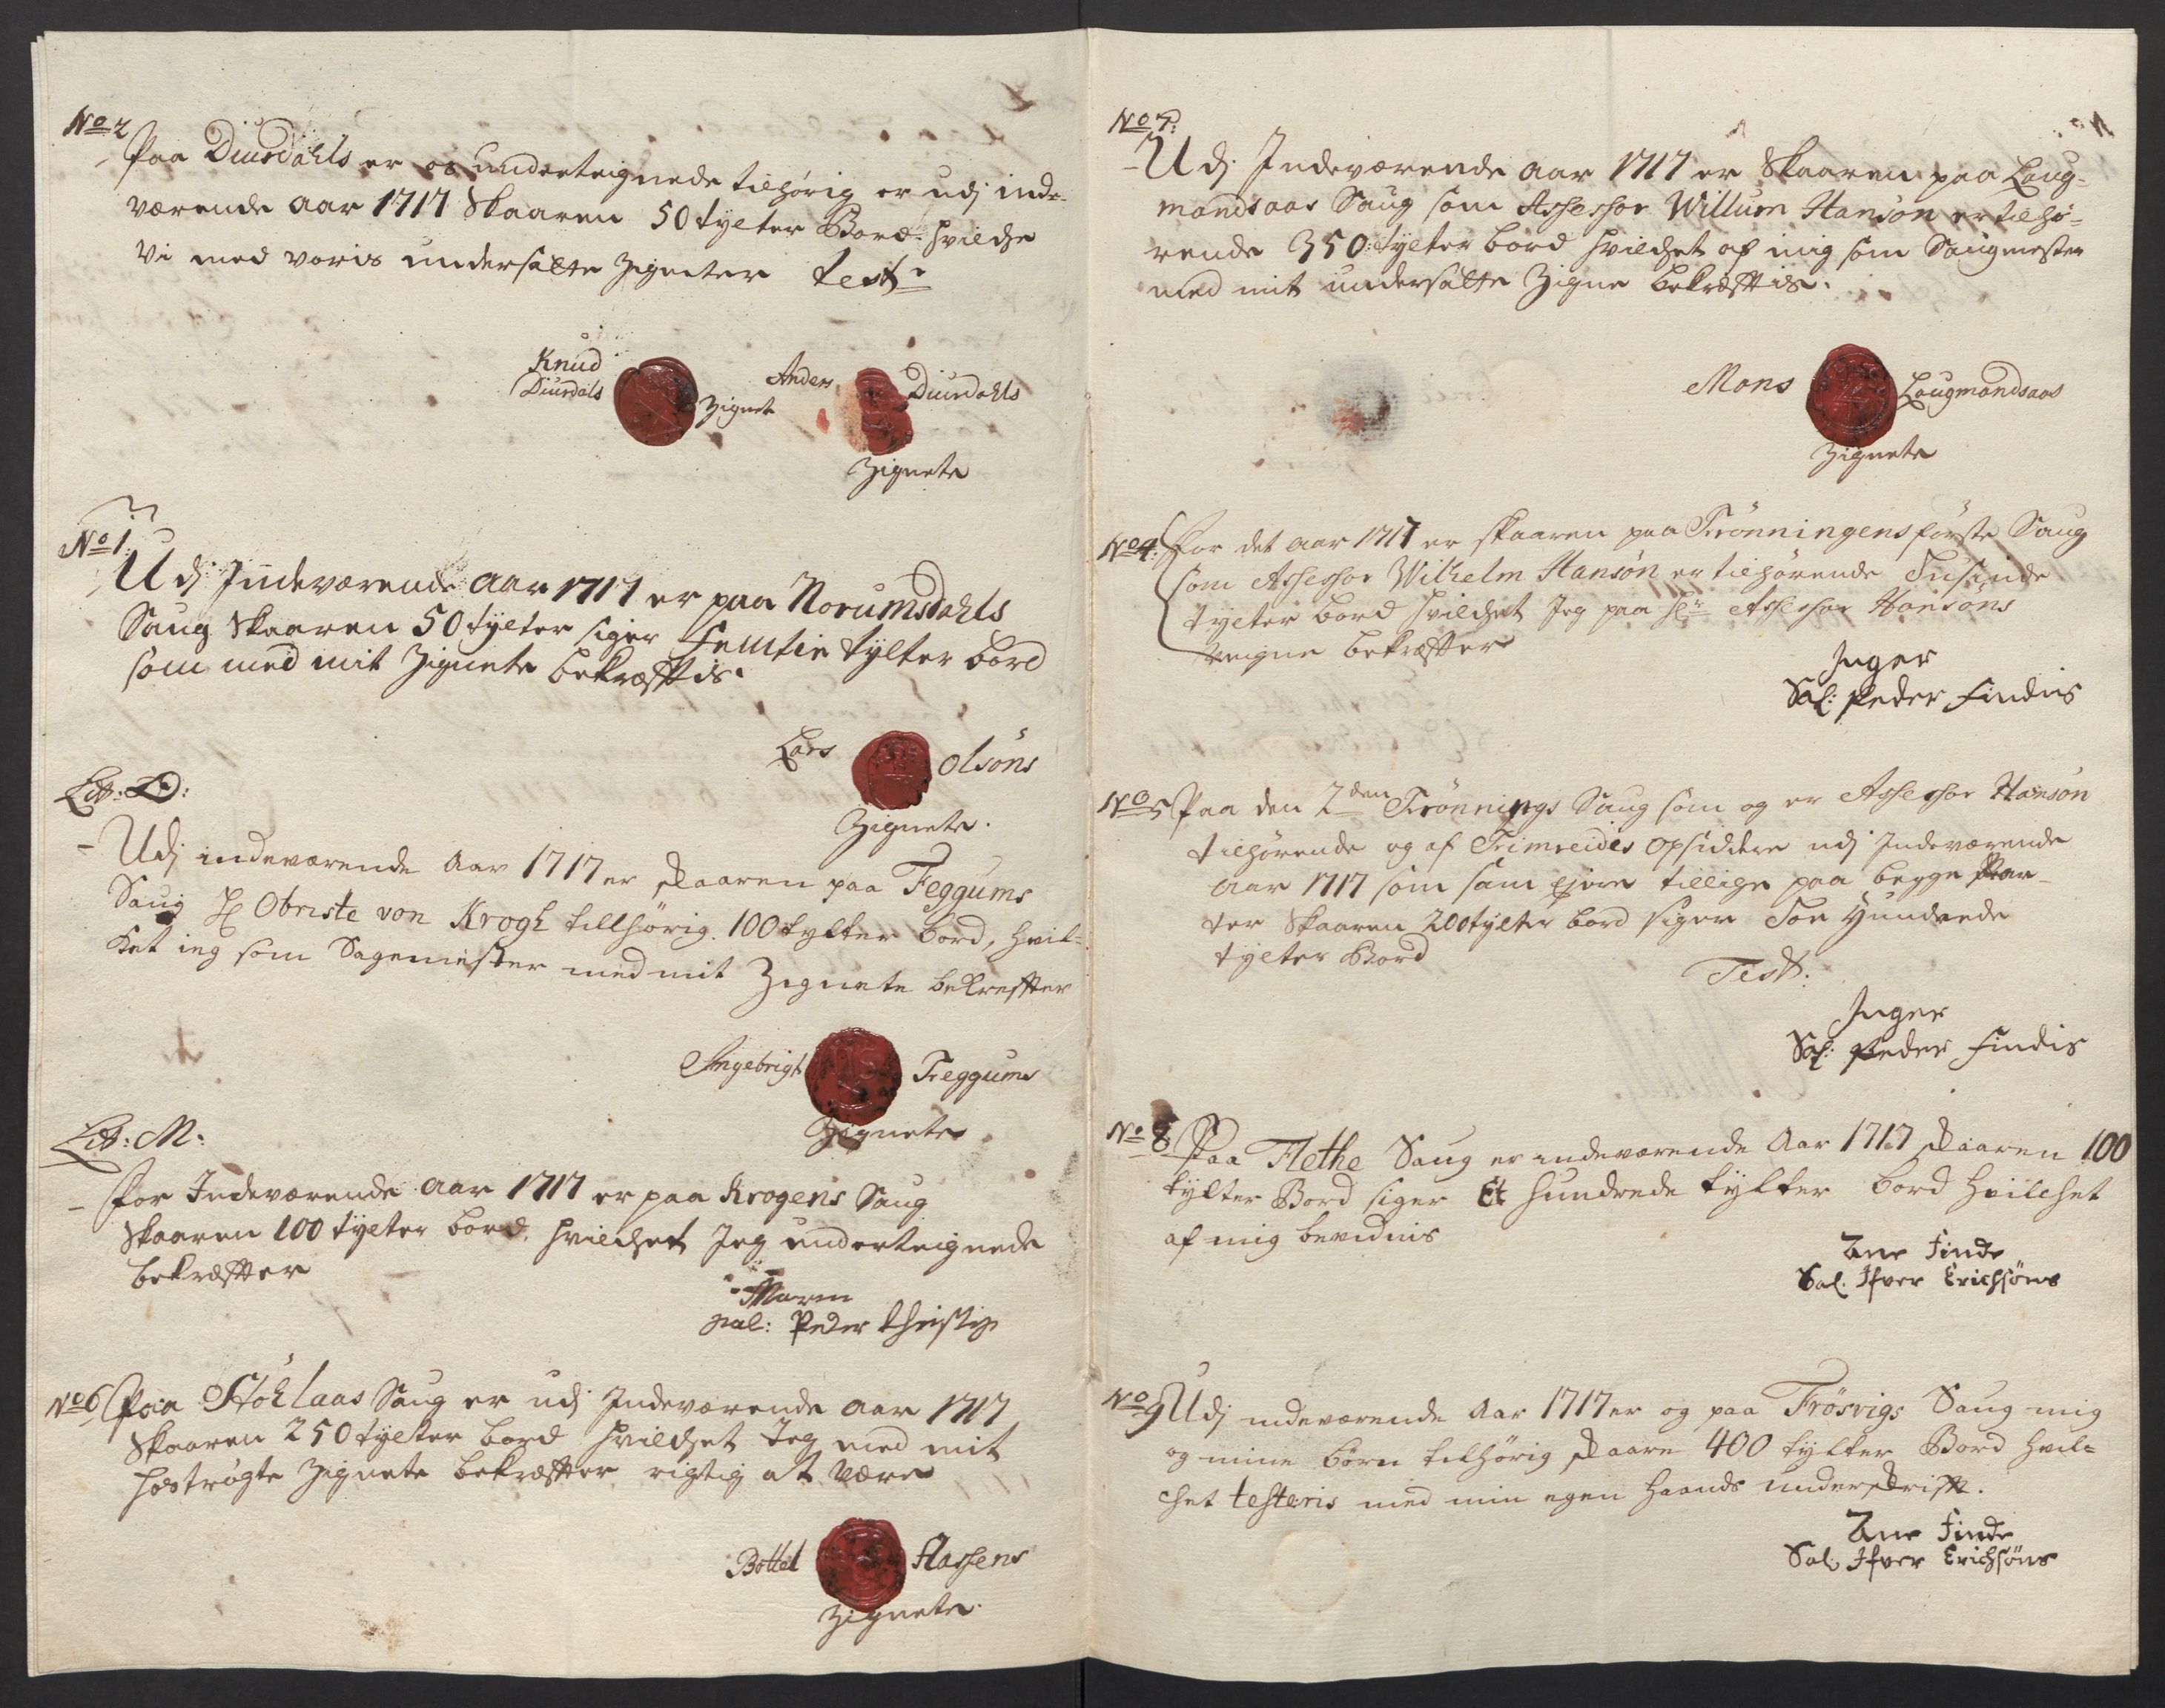 No 2
Paa Diurdahls er os underteignede tilhørig er udj inde-
værende aar 1717 Skaaren 50 tylter Bord hvilche
Vi med voris undersatte Zigneter test:
Knud
Diurdals
Zignet
Anders
Diurdahls
Zignete
No 1
Udj Indeværende aar 1717 er paa Norumsdahls
Saug Skaaren 50 tylter siger Femtie tylter bord
som med mit Zignete bekræfftis.
Lars
Olsøns
Zignete.
Litr: D:
Udj indeværende aar 1717 er skaaren paa Feggums
Saug H Obriste von Krogh tillhørig 100 tylter bord, hvil-
ket ieg som Sagemester med mit Zignete bekreffter
Engebrigt
Feggums
Zignete
Litr: M:
For Indeværende aar 1717 er paa Krogens Saug
Skaaren 100 tylter bord, hvilchet Jeg underteignede
bekræffter
Maren
sal: Peder Christie
No 6 Paa Støhlaas Saug er udj Indeværende aar 1717
Skaaren 250 tylter bord hvilchet Jeg med mit
hostrøgte Zignete bekræffter rigtig at være
Bottel
Flassens
Zignete.
No 7:
Udj Indeværende aar 1717 er Skaaren paa Laug-
mandsaas Saug som Assessor Willum Hanson er tilhø-
rende 350: tylter bord hvilchet af mig som Saugmester
med mit undersatte Zigne bekræfftis.
Mons
Laugmandsaas
Zignete
No 4: For det aar 1717 er skaaren paa Trønningens første Saug
som Assessor Wilhelm Hansøn er tilhørende Tusinde
tylter bord hvilchet Jeg paa Hr: Assessor Hansøns
Veigne bekræffter
Inger
Sal: Peder Findis
No 5 Paa den 2den Trønnings Saug som og er Assessor Hansøn
tilhørende og af Trimreides opsiddere udj Indeværende
aar 1717 som sam ejere tillige paa begge Par-
ter Skaaren 200 tylter bord siger Toe Hundrede
tylter Bord
Test:
Inger
Sal: Peder Findis
No 8 Paa Flethe Saug er indeværende Aar 1717 skaaren 100
tylter Bord siger Et hundrede tylter bord hvilchet
af mig bevidnis
Ane Finde
Sal. Ifver Erichsøns
No 9 Udj indeværende Aar 1717 er og paa Frøsvigs Saug mig
og mine børn tilhørig skaare 400 tylter Bord hvil-
chet testeris med min egen haands underskrifft.
Ane Finde
Sal. Ifver Erichsøns